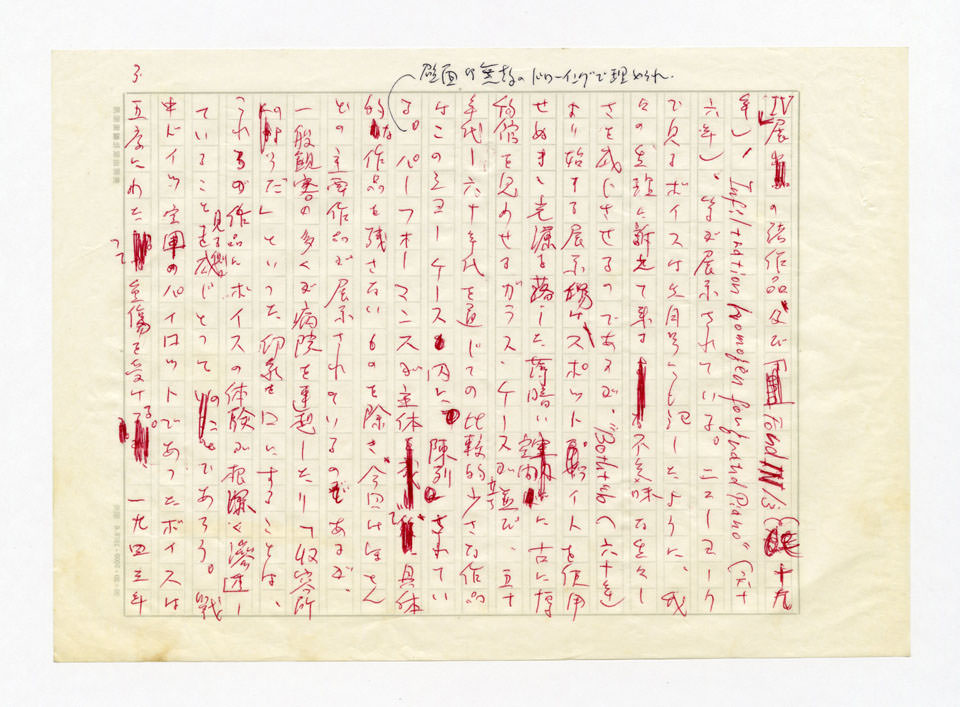 壁面は無数のドローイングで埋められ、
3.
IV展の諸作品及び Fond III/3 (七十九
年)、Infiltration homogen for grand Piano" (六十
六年)。等が展示されている。ニューヨーク
で見るボイスは先月号にも記したように、我
々の生理に訴えて来る不気味な生々し
さを感じさせるのであるが、"Bathtub (六十年)
より始まる展示場はスポットライトを使用
せぬまゝ光源を落した薄暗い室内に、古い博
物館を思わせるガラス・ケースが立ち並び、五十
年代〜六十年代を通じての比較的少さな作品
はこのショーケース内に陳列されてい
る。パーフォーマンスが主体で、具体
的な作品を残さないものを除き、今回はほとん
どの主要作品が展示されているのであるが、
一般観客の多くが病院を連想したり「収容所
のようだ」といった印象を口にすることは、
これらの作品にボイスの体験が根深く浸透し
ていることを見る側も感じとって のことであろう。戦
中ドイツ空軍のパイロットであったボイスは
五度にわたって重傷を受ける。一九四三年